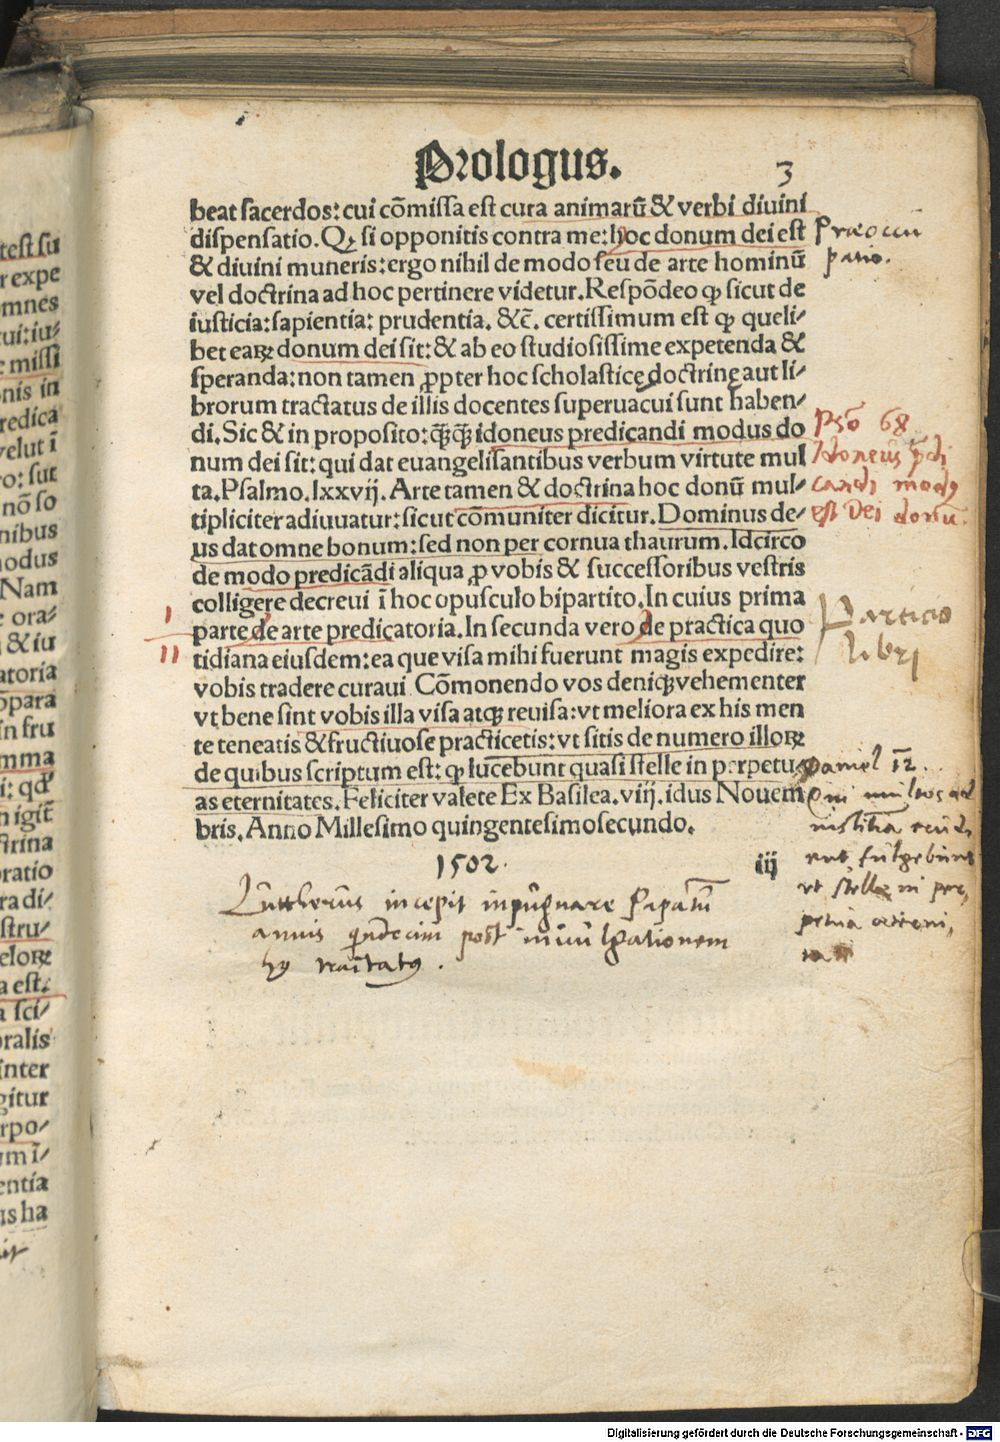 Prologus.
3
beat sacerdos: cui cōmissa est cura animarū & verbi diuini
dispensatio. Qꝙ si opponitis contra me: hoc donum dei est
& diuini muneris: ergo nihil de modo seu de arte hominū
vel doctrina ad hoc pertinere videtur. Respōdeo ꝙ sicut de
iusticia: sapientia: prudentia. &c̄. certissimum est ꝙ queli⸗
bet earꝝ donum dei sit: & ab eo studiosissime expetenda &
speranda: non tamen ꝓpter hoc scholastice doctrine aut li⸗
brorum tractatus de illis docentes superuacui sunt haben⸗
di. Sic & in proposito: ꝙ̄ꝙ̄ idoneus predicandi modus do
num dei sit: qui dat euangelisantibus verbum virtute mul
ta. Psalmo. lxxvij. Arte tamen & doctrina hoc donū mul⸗
tipliciter adiuuatur: sicut cōmuniter dicitur. Dominus de⸗
us dat omne bonum: sed non per cornua thaurum. Idcirco
de modo predicādi aliqua ꝓ vobis & successoribus vestris
colligere decreui ī hoc opusculo bipartito. In cuius prima
parte de arte predicatoria. In secunda vero de practica quo
tidiana eiusdem: ea que visa mihi fuerunt magis expedire:
vobis tradere curaui Cōmonendo vos deniqꝫ vehementer
vt bene sint vobis illa visa atqꝫ reuisa: vt meliora ex his men
te teneatis & fructiuose practicetis: vt sitis de numero illorꝝ
de quibus scriptum est: ꝙ lucebunt quasi stelle in perpetu
as eternitates. Feliciter valete Ex Basilea. viij. idus Nouem
bris. Anno Millesimo quingentesimosecundo.
iij
1502.
Lutherus incepit inpugnare Papatū
annis quindecim post
tractatus.
Præoccu
patio.
Psō 68
Idoneus p̄di
candi modꝰ
est Dei donū.
I
II
Partitio
libri
Daniel 12.
Qui multos ad
iustitia erudi
ent fulgebunt
vt stellæ in per⸗
petua
test su
r expe
omnes
cui: iu⸗
missi
nis in
redica
velut ī
ro: sut
nō so
nibus
nodus
Nam
e ora⸗
& iu
atoria
ōpara
in fru
mma
i: qd'
n igit̄
trina
ratio
ra di⸗
stru⸗
elorꝝ
a est.
a sci⸗
oralis
inter
gitur
rpo⸗
um ī⸗
entia
us ha
Digitalisierung gefördert durch die Deutsche Forschungsgemeinschaft - DFG